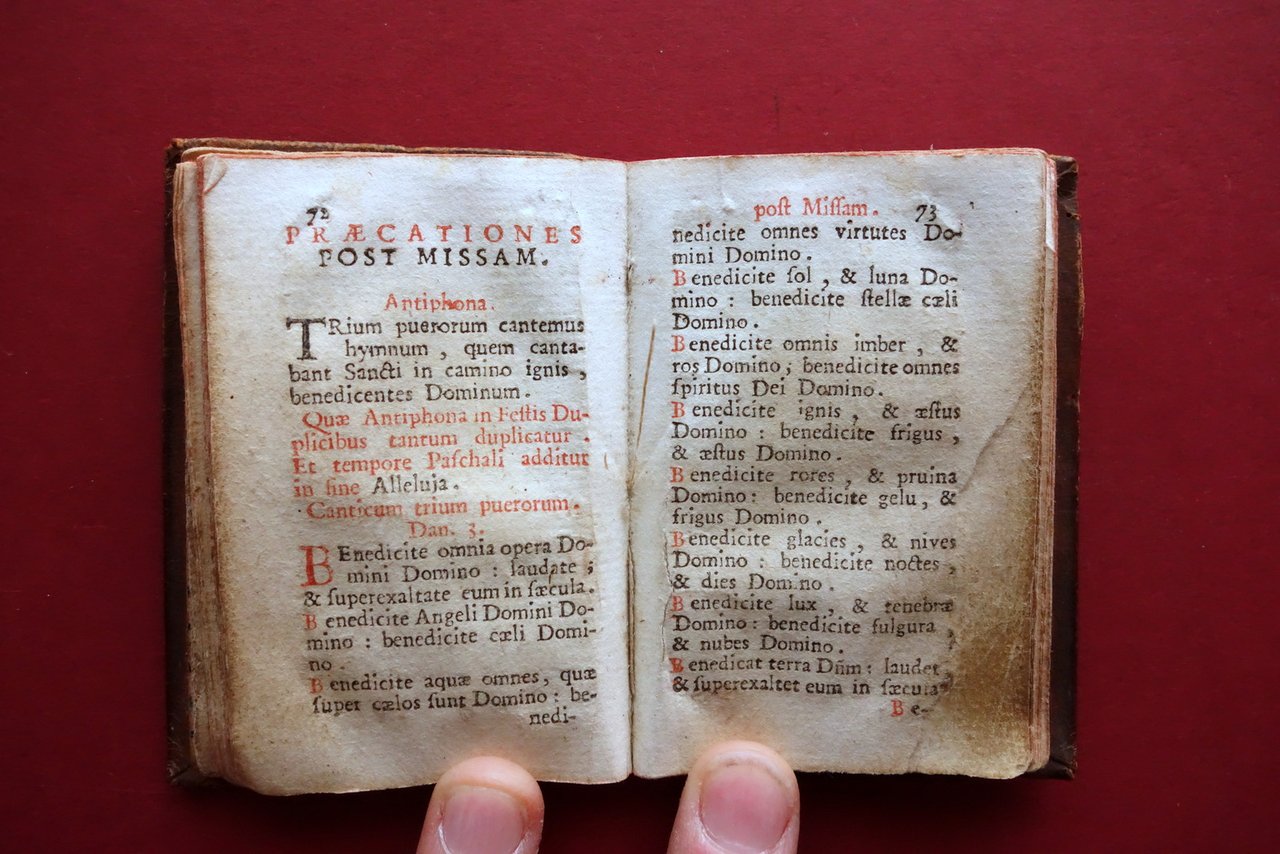 72
PRÆCATIONES
POST MISSAM.
Antiphona.
TRium puerorum cantemus
hymnum, quem canta-
bant Sancti in camino ignis,
benedicentes Dominum.
Quæ Antiphona in Feſtis Du-
plicibus tantum duplicatur.
Et tempore Paſchali additur
in fine Alleluja.
Canticum trium puerorum.
Dan. 3.
BEnedicite omnia opera Do-
mini Domino: laudate;
& ſuperexaltate eum in ſæcula.
Benedicite Angeli Domini Do-
mino: benedicite cæli Domi-
no.
Benedicite aquæ omnes, quæ
ſuper cælos ſunt Domino: be-
nedi-
post Miſſam. 73
nedicite omnes virtutes Do-
mini Domino.
Benedicite ſol, & luna Do-
mino: benedicite ſtellæ cæli
Domino.
Benedicite omnis imber, &
ros Domino; benedicite omnes
ſpiritus Dei Domino.
Benedicite ignis, & æſtus
Domino: benedicite frigus,
& æſtus Domino.
Benedicite rores, & pruina
Domino: benedicite gelu, &
frigus Domino.
Benedicite glacies, & nives
Domino: benedicite noctes,
& dies Domino.
Benedicite lux, & tenebræ
Domino: benedicite fulgura,
& nubes Domino.
Benedicat terra Dñm: laudet,
& ſuperexaltet eum in ſæcula
Be-